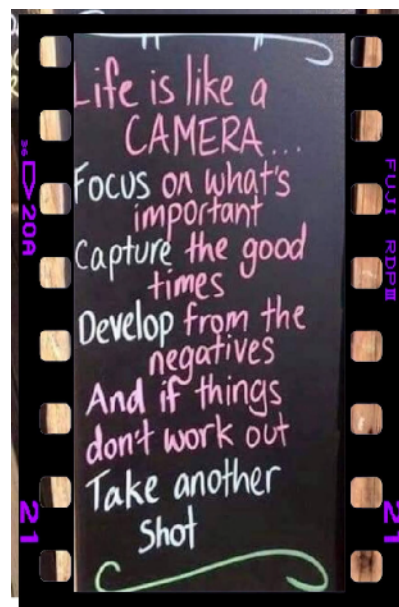 Life is like a
CAMERA...
Focus on what's
important
Capture the good
times
Develop from the
negatives
And if things
don't work out
Take another
Shot
36
20A
FUJI RDPIII
21
21